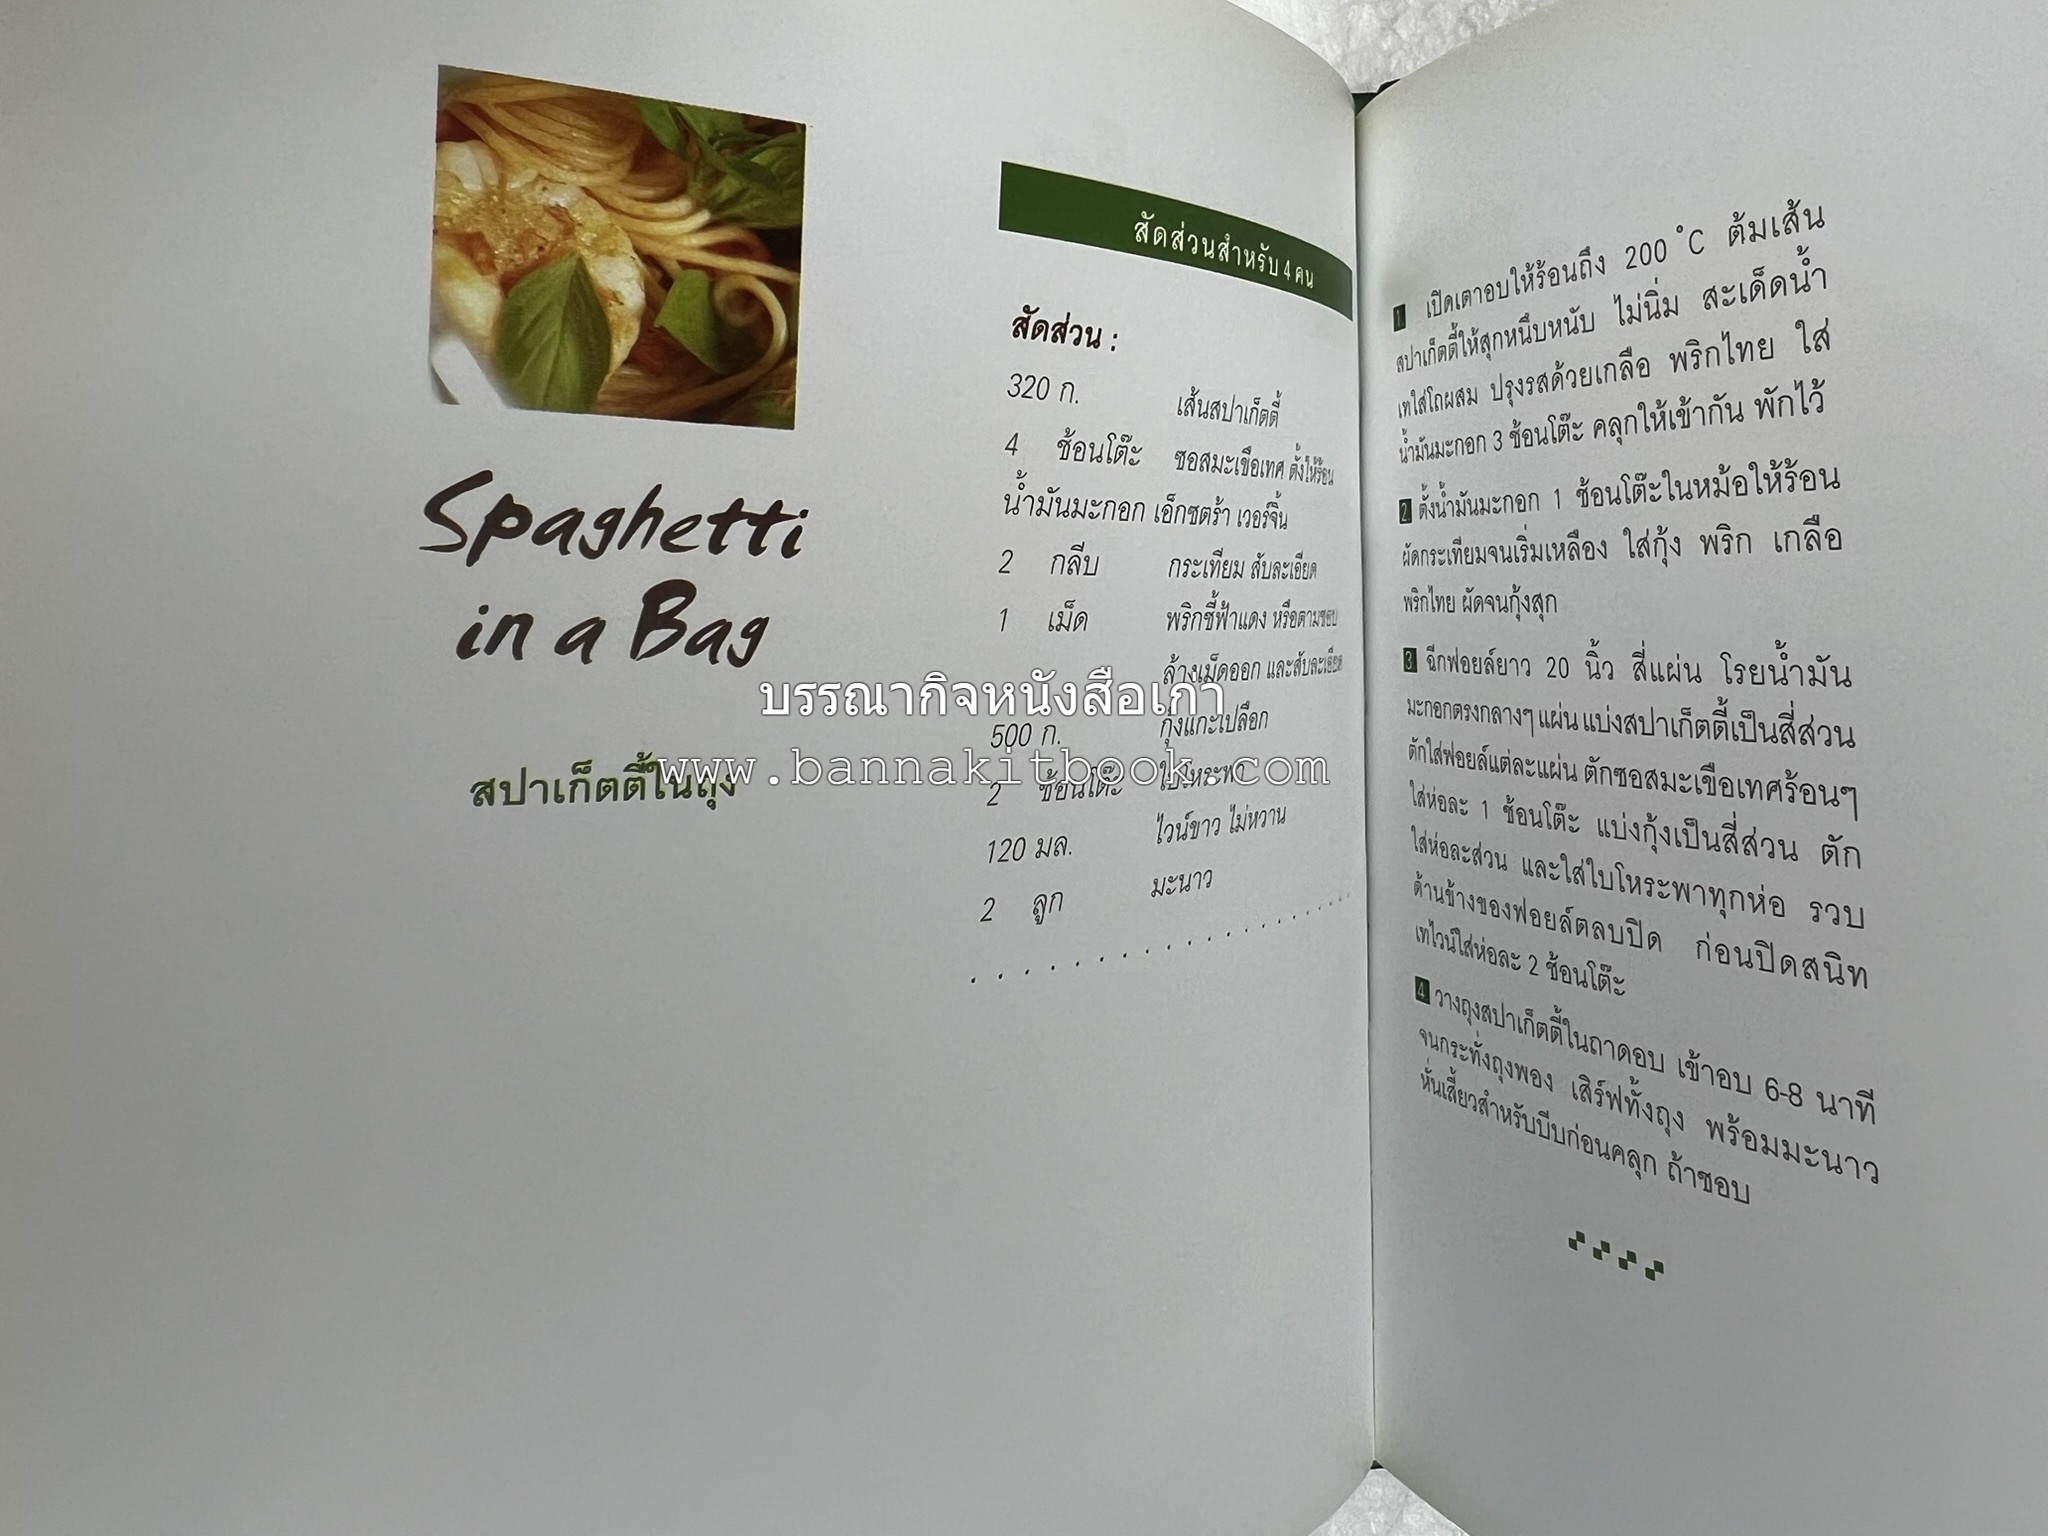 Spaghetti
in a Bag
สปาเก็ตตี้ในถุง
สัดส่วนสำหรับ 4 คน
สัดส่วน :
320 ก. เส้นสปาเก็ตตี้
4 ช้อนโต๊ะ ซอสมะเขือเทศ ตั้งให้ร้อน
น้ำมันมะกอก เอ็กซตร้า เวอร์จิ้น
2 กลีบ กระเทียม สับละเอียด
1 เม็ด พริกชี้ฟ้าแดง หรือตามชอบ
ล้างเม็ดออก และสับละเอียด
500 ก. กุ้งแกะเปลือก
2 ช้อนโต๊ะ ใบโหระพา
120 มล. ไวน์ขาว ไม่หวาน
2 ลูก มะนาว
บรรณากิจหนังสือเก่า
www.bannakitbook.com
1 เปิดเตาอบให้ร้อนถึง 200 °C ต้มเส้น
สปาเก็ตตี้ให้สุกหนึบหนับ ไม่นิ่ม สะเด็ดน้ำ
เทใส่โถผสม ปรุงรสด้วยเกลือ พริกไทย ใส่
น้ำมันมะกอก 3 ช้อนโต๊ะ คลุกให้เข้ากัน พักไว้
2 ตั้งน้ำมันมะกอก 1 ช้อนโต๊ะในหม้อให้ร้อน
ผัดกระเทียมจนเริ่มเหลือง ใส่กุ้ง พริก เกลือ
พริกไทย ผัดจนกุ้งสุก
3 ฉีกฟอยล์ยาว 20 นิ้ว สี่แผ่น โรยน้ำมัน
มะกอกตรงกลางๆ แผ่น แบ่งสปาเก็ตตี้เป็นสี่ส่วน
ตักใส่ฟอยล์แต่ละแผ่น ตักซอสมะเขือเทศร้อนๆ
ใส่ห่อละ 1 ช้อนโต๊ะ แบ่งกุ้งเป็นสี่ส่วน ตัก
ใส่ห่อละส่วน และใส่ใบโหระพาทุกห่อ รวบ
ด้านข้างของฟอยล์ตลบปิด ก่อนปิดสนิท
เทไวน์ใส่ห่อละ 2 ช้อนโต๊ะ
4 วางถุงสปาเก็ตตี้ในถาดอบ เข้าอบ 6-8 นาที
จนกระทั่งถุงพอง เสิร์ฟทั้งถุง พร้อมมะนาว
หั่นเสี้ยวสำหรับบีบก่อนคลุก ถ้าชอบ